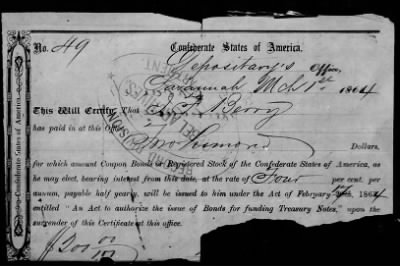 No. 49 Confederate States of America.
Depositary's Office,
Savannah Mch 1st 1864
This Will Certify, That Berry
has paid in at this Office
Two Hundred Dollars,
for which amount Coupon Bonds or Registered Stock of the Confederate States of America, as
he may elect, bearing interest from this date, at the rate of Four per cent. per
annum, payable half yearly, will be issued to him under the Act of February 1864
entitled "An Act to authorize the issue of Bonds for funding Treasury Notes," upon the
surrender of this Certificate at this office.
$200 00/100
Confederate States of America.